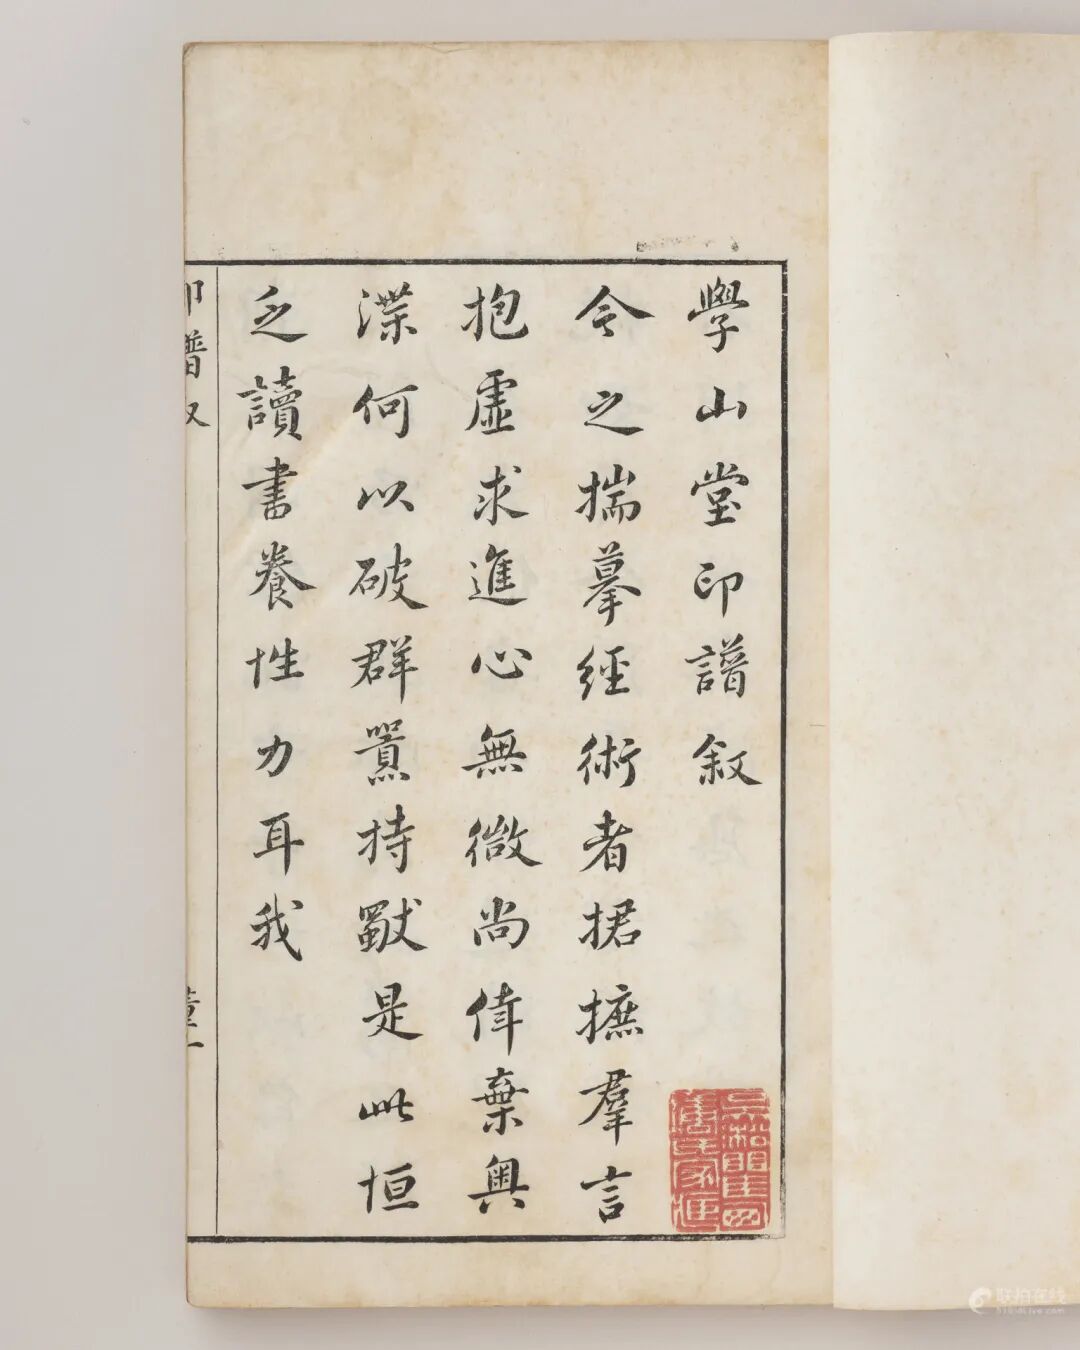 學山堂印譜敘
今之揣摹經術者捃摭羣言
抱虛求進心無微尚偉棄奧
渫何以破群嚚持猷是此恒
之讀書養性力耳我
印譜叙
董一
联拍在线